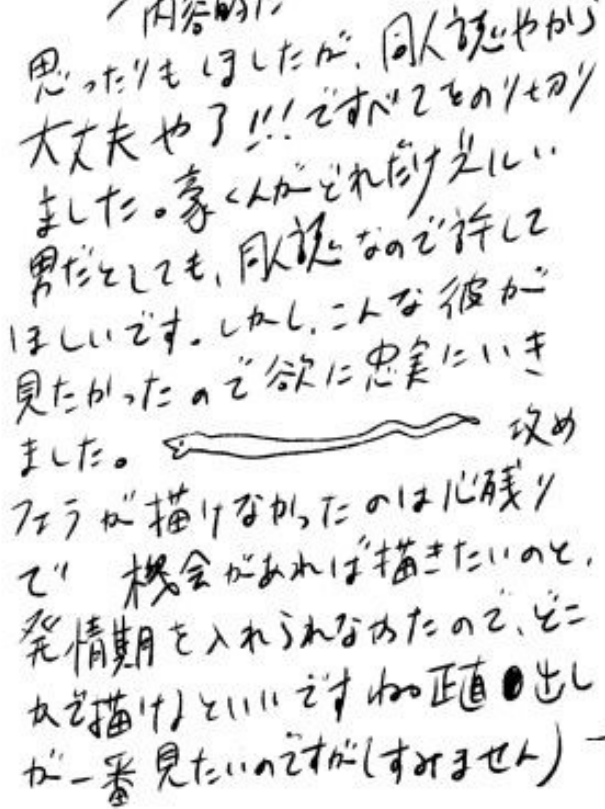 内容的に
思ったりもしましたが、同人誌やから
大丈夫や了!!!ですべてをのりせ切り
ました。豪くんがどれだけえしい
男だとしても、同人誌なので許して
ほしいです。しかし、こんな彼が
見たかったので欲に忠実にいき
ました。 攻め
フェラが描けなかったのは心残り
で 機会があれば描きたいのと、
発情期を入れられなかったので、どこ
かで描けるといいですね。正直●出し
が一番見たいのですが(すみません)